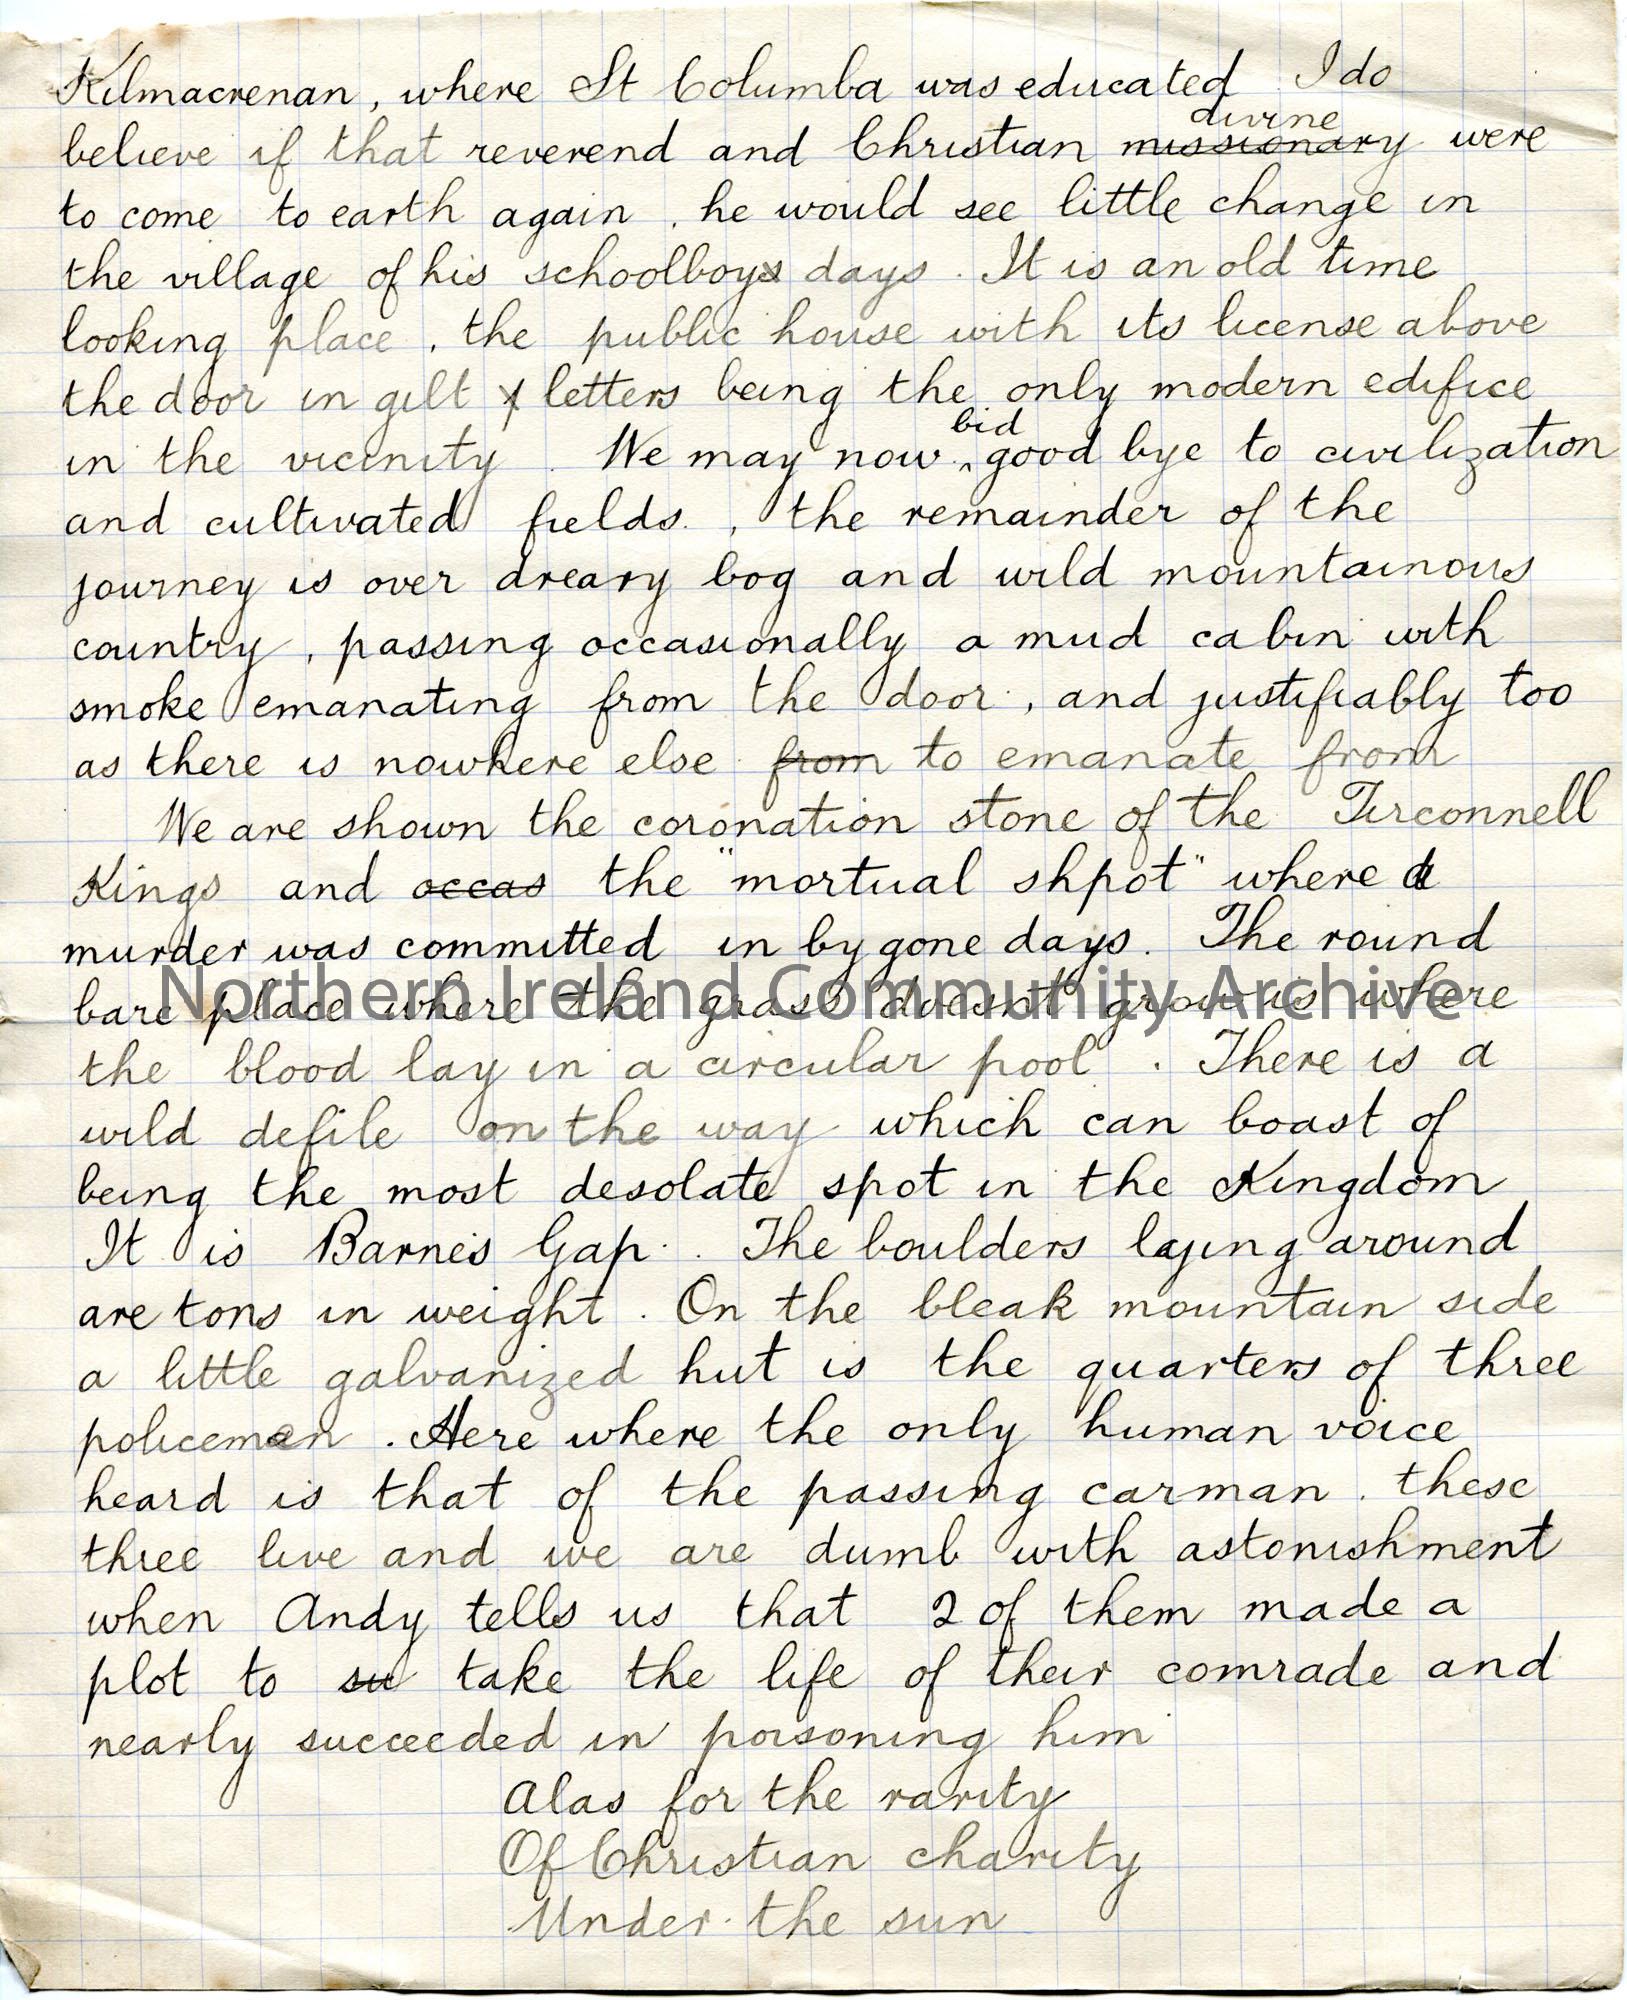 Kilmacrenan, where St Columba was educated I do
divine
believe if that reverend and Christian missionary were
to come to earth again, he would see little change in
the village of his schoolboys days. It is an old time
looking place, the public house with its license above
the door in gilt letters being the only modern edifice
bid
in the vicinity. We may now ‸ good bye to civilization
and cultivated fields., the remainder of the
journey is over dreary bog and wild mountainous
country, passing occasionally a mud cabin with
smoke emanating from the door, and justifiably too
as there is nowhere else from to emanate from
We are shown the coronation stone of the Tirconnell
Kings and occas the "mortual shpot" where a
murder was committed in by gone days. The round
bare place where the grass doesn't grow is where
Northern Ireland Community Archive
the blood lay in a circular pool. There is a
wild defile on the way which can boast of
being the most desolate spot in the Kingdom
It is Barnes Gap. The boulders laying around
are tons in weight. On the bleak mountain side
a little galvanized hut is the quarters of three
policemen. Here where the only human voice
heard is that of the passing carman, these
three live and we are dumb with astonishment
when Andy tells us that 2 of them made a
plot to su take the life of their comrade and
nearly succeeded in poisoning him
Alas for the rarity
Of Christian charity
Under the sun